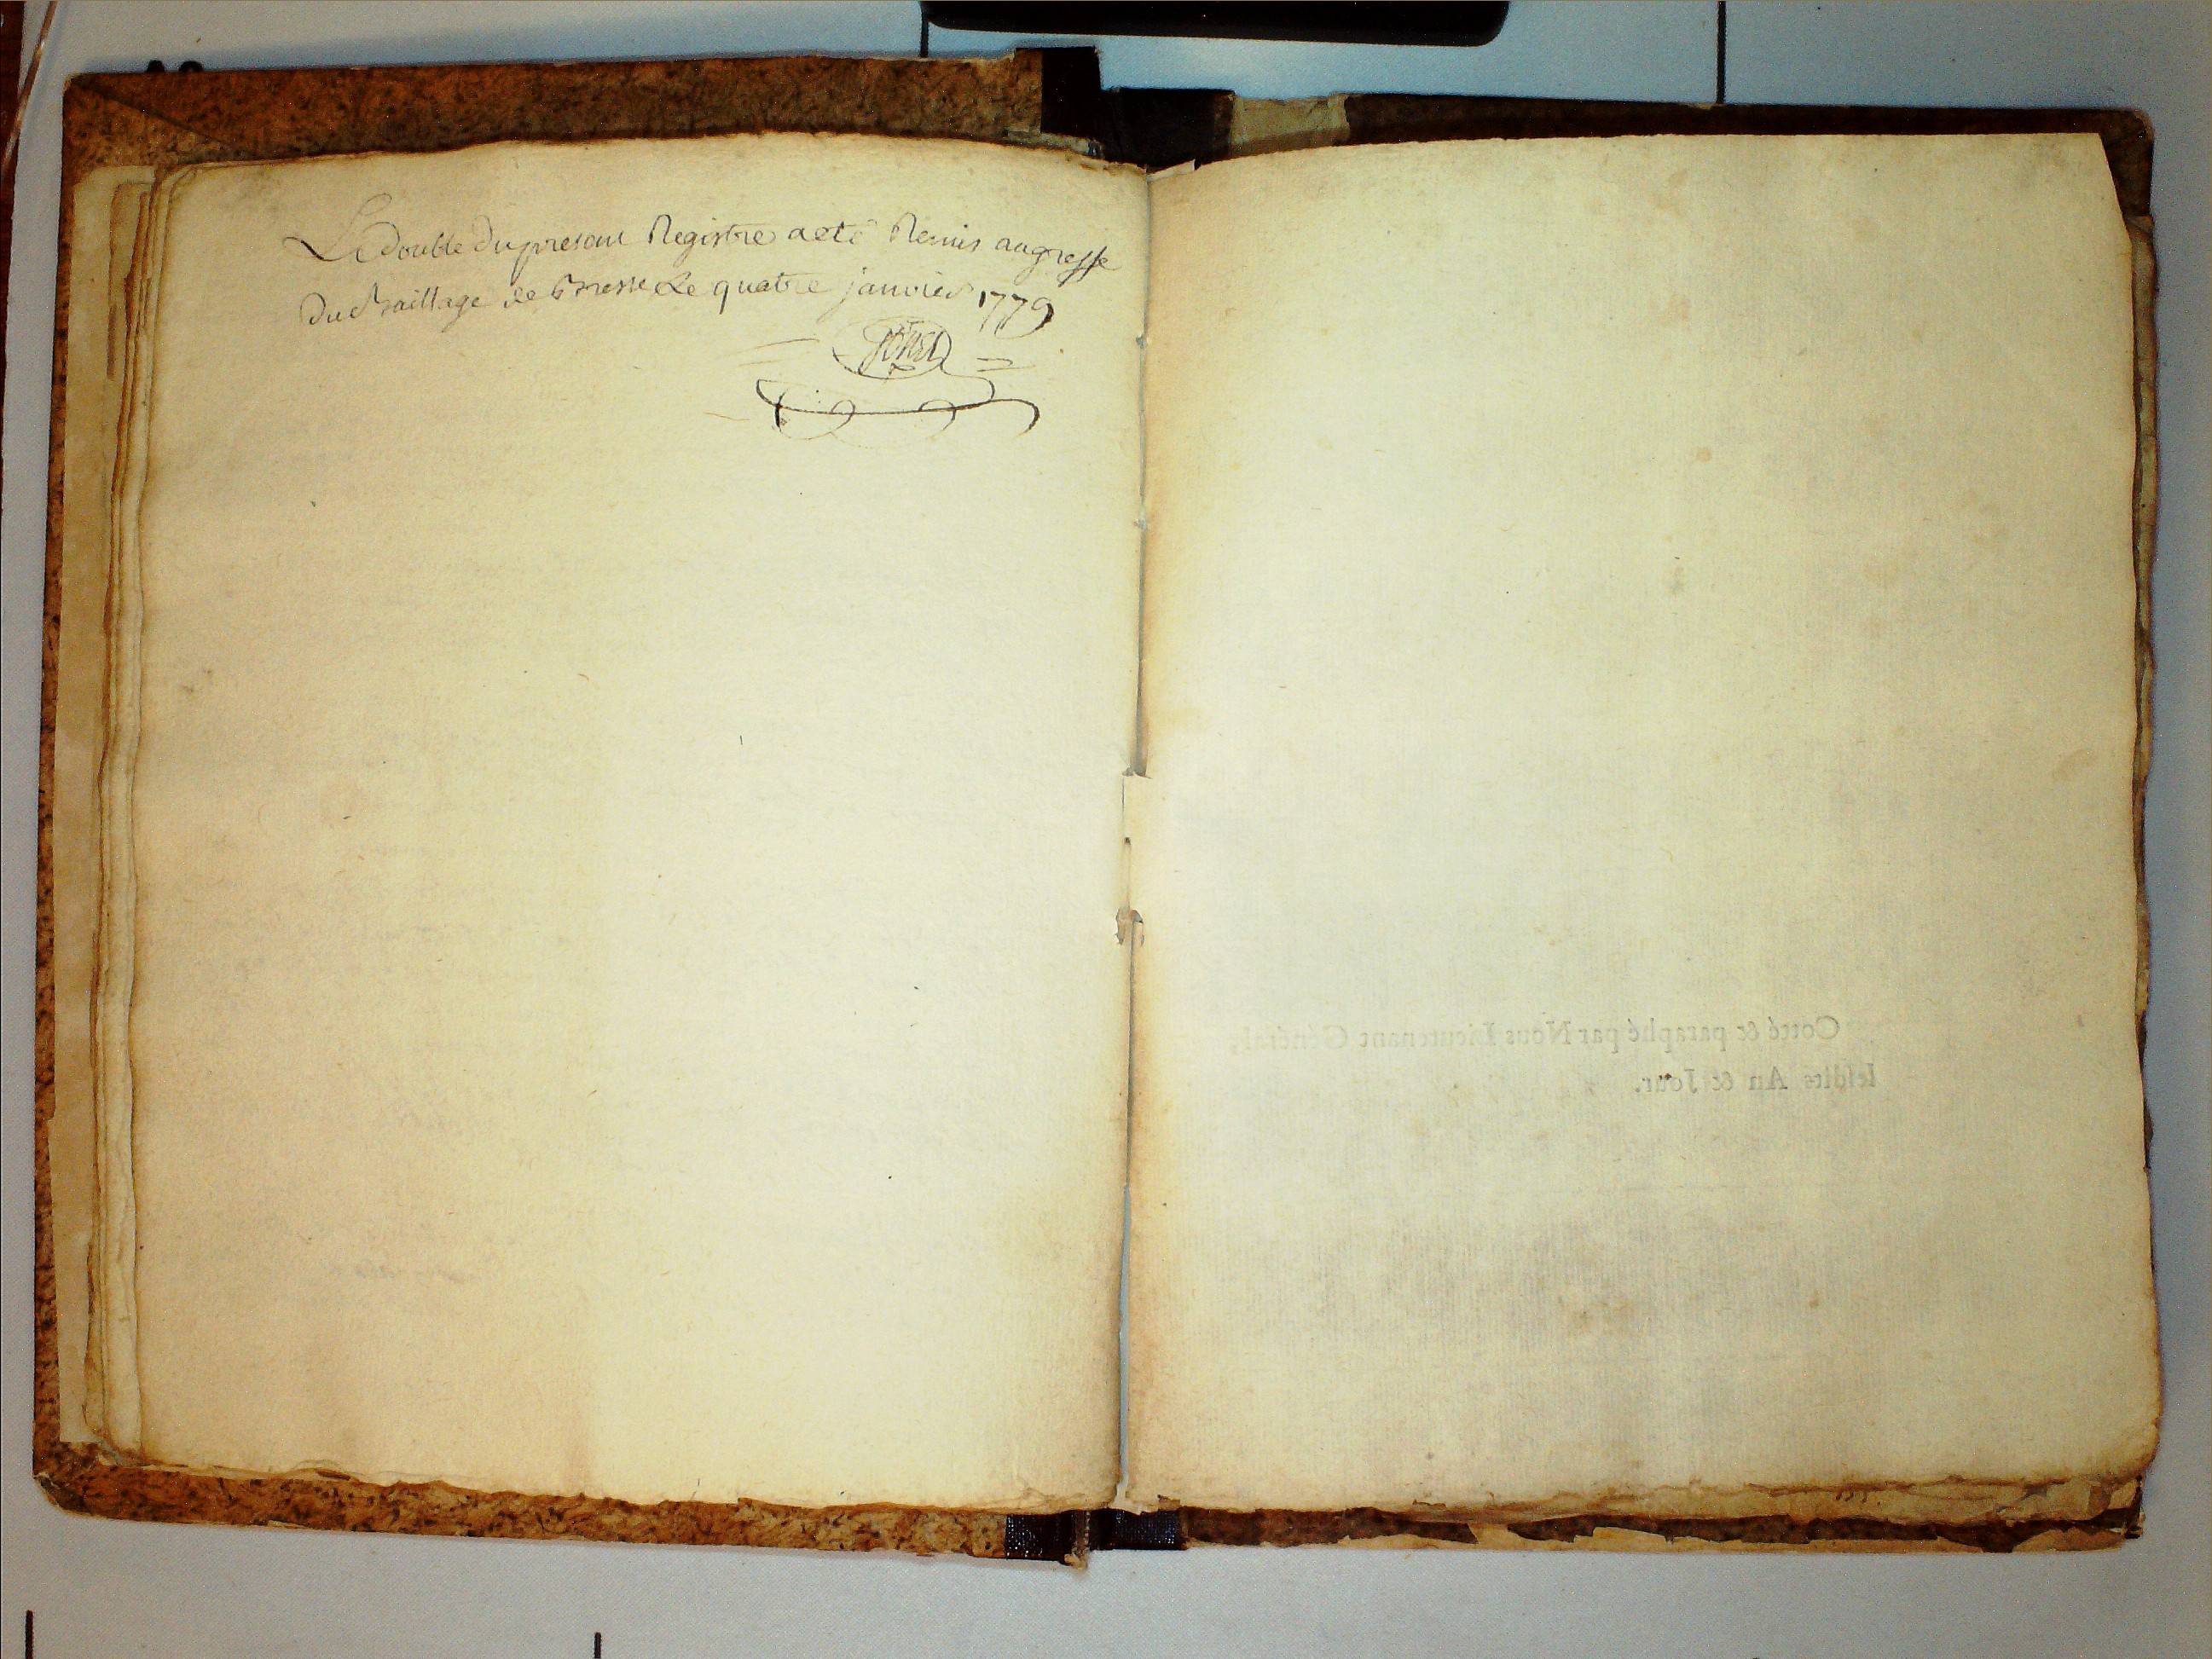 Le double du presant Registre a eté Remis au greffe
du Baillage de Bresse Le quatre janvier 1779
Cotté & paraphé par Nous Lieutenant Général,
lesdits An & Jour.